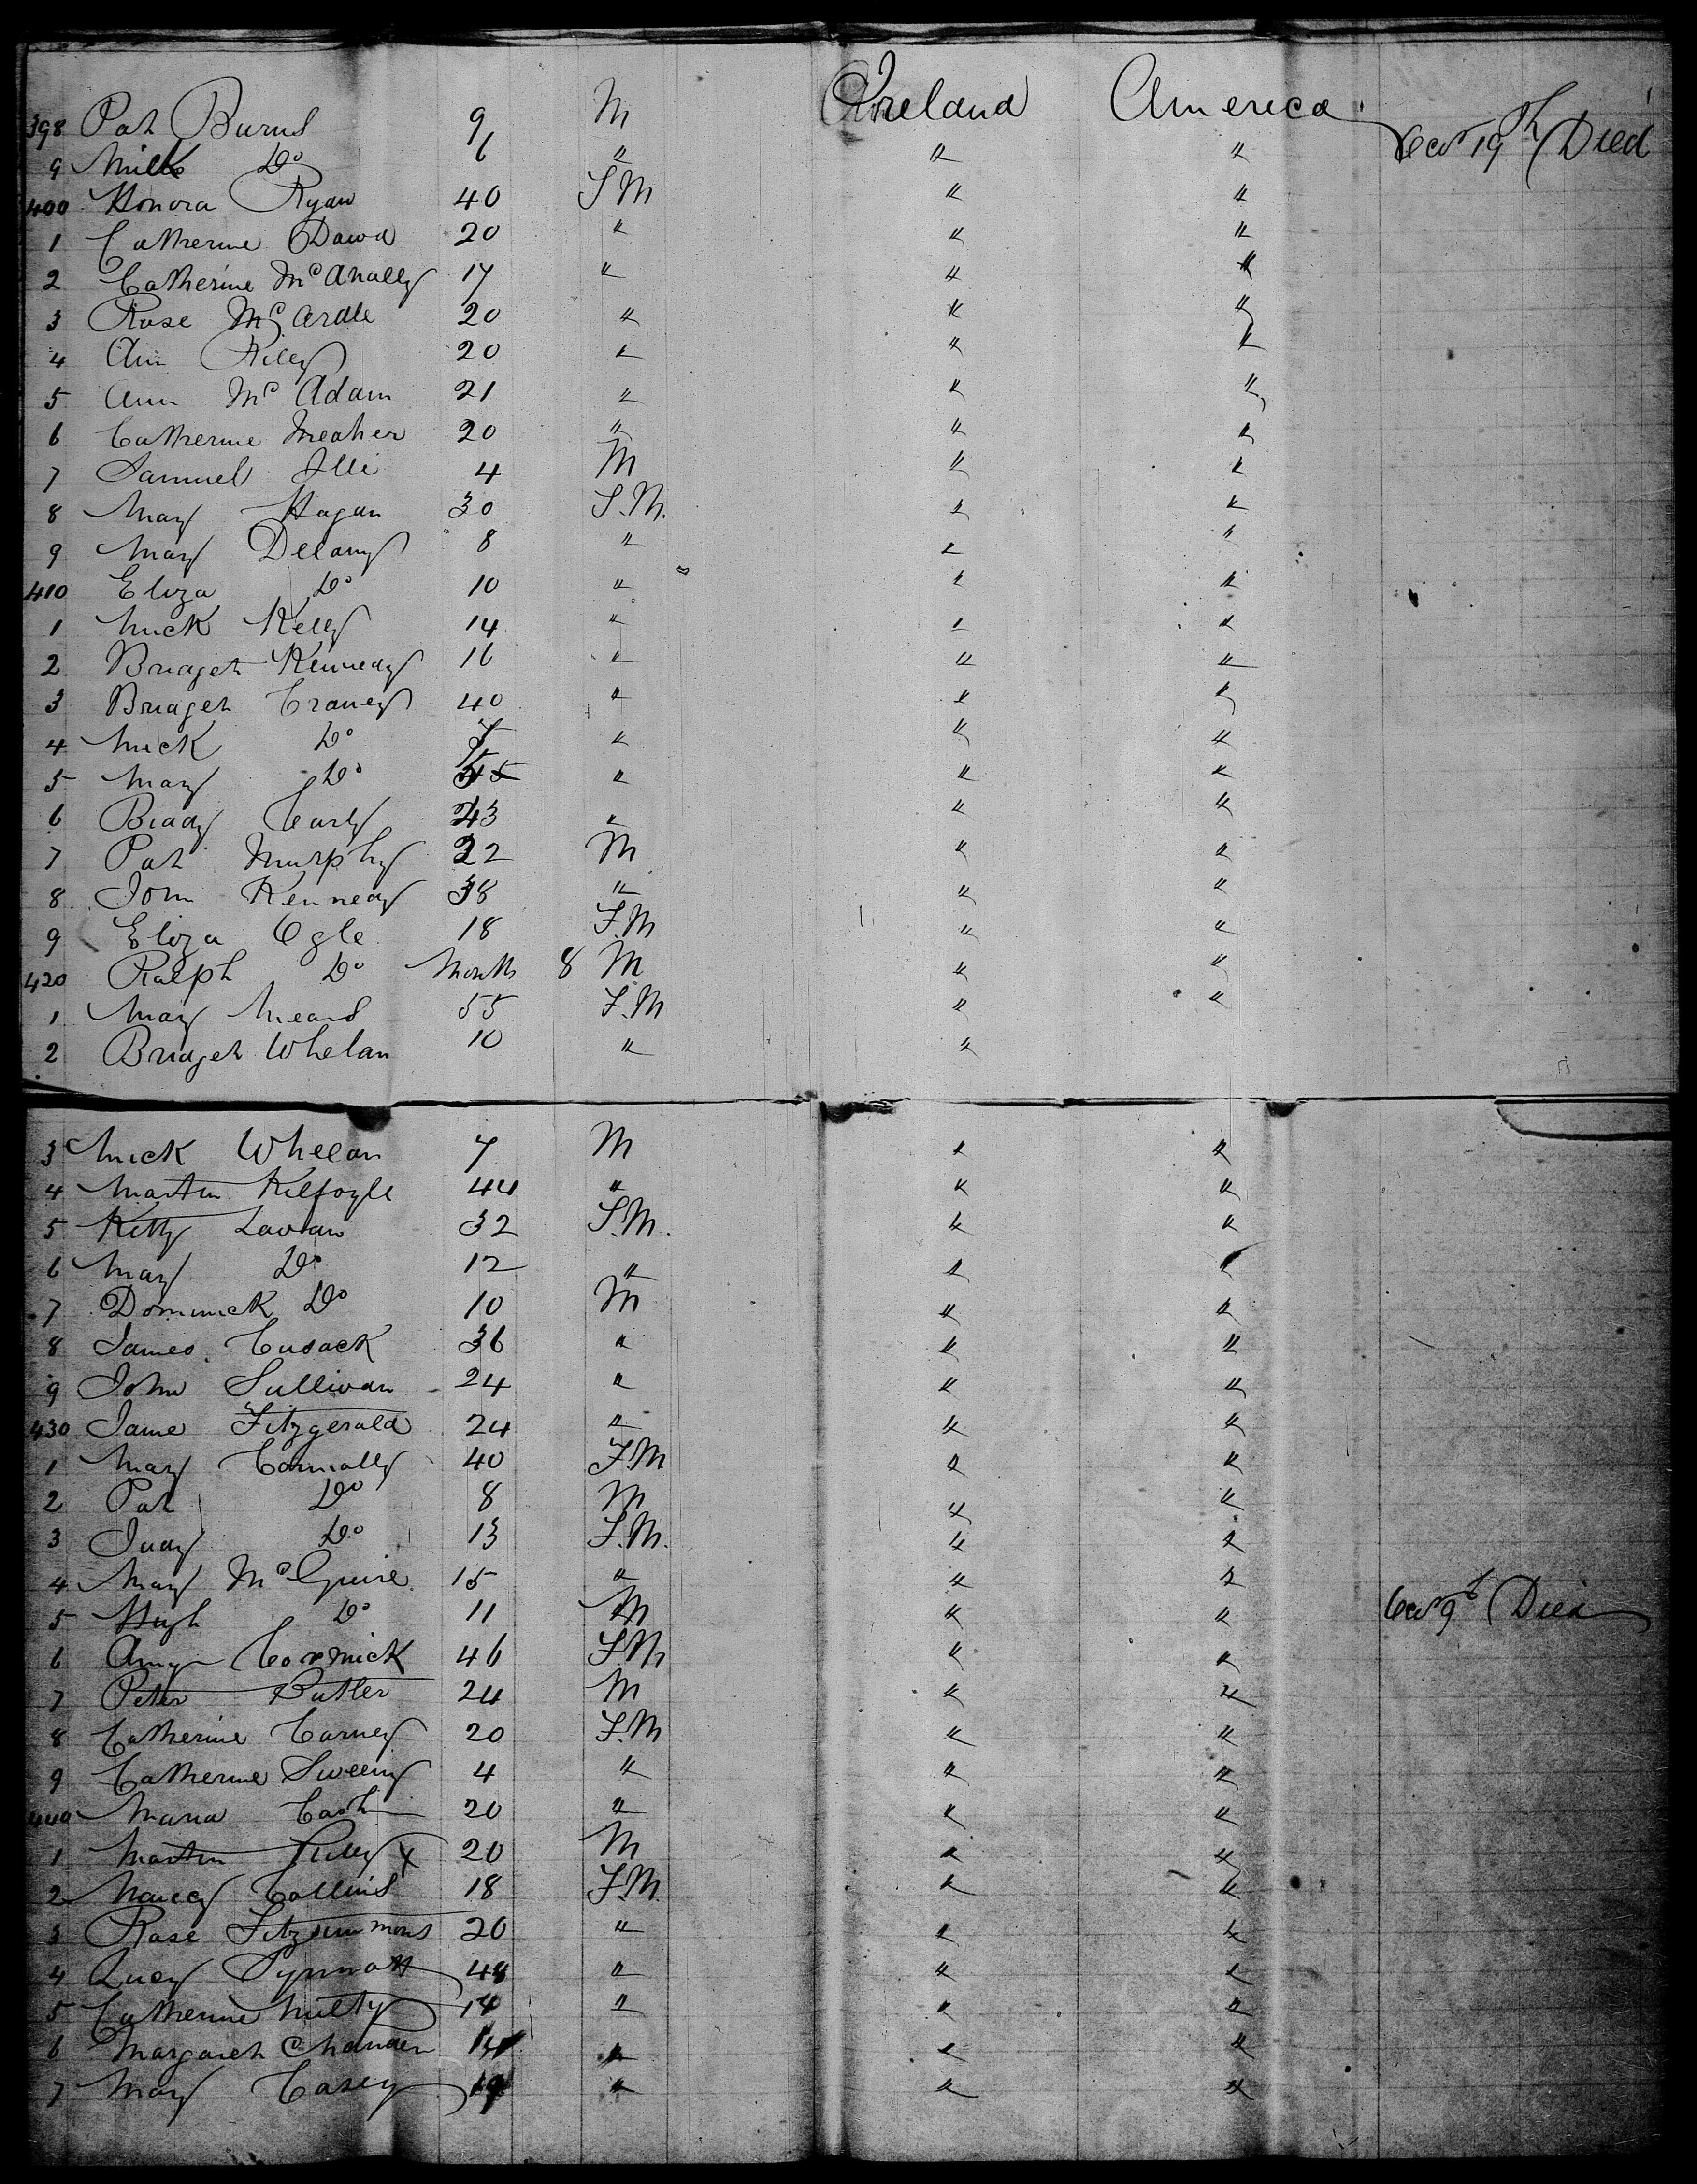 398 Pat Burns 9 M Ireland America
9 Do 6 " " " 19th Died
400 Honora Ryan 40 F M " "
1 Catherine Dawd 20 " " "
2 Catherine McAnally 17 " " "
3 Rose McArdle 20 " " "
4 Ann Riley 20 " " "
5 Ann McAdam 21 " " "
6 Catherine Meaher 20 " " "
7 Samuel 4 M " "
8 Mary Hagan 30 F.M. " "
9 Mary Delany 8 " " "
410 Eliza Do 10 " " "
1 Mick Kelly 14 " " "
2 Bridget Kennedy 16 " " "
3 Bridget Craney 40 " " "
4 Mick Do " " "
5 Mary Do " " "
6 Biddy 23 " " "
7 Pat Murphy 22 M " "
8 John Kennedy 38 " " "
9 Eliza Ogle 18 F.M " "
420 Ralph Do Month 8 M " "
1 Mary Means 55 F.M " "
2 Bridget Whelan 10 " "
3 Mick Whelan 7 M " "
4 Martin Kilfoyle 44 " " "
5 Kitty Lavan 32 F.M. " "
6 Mary Do 12 " " "
7 Dominick Do 10 M " "
8 James Cusack 36 " " "
9 John Sullivan 24 " " "
430 Jame Fitzgerald 24 " " "
1 Mary Connolly 40 F.M " "
2 Pat Do 8 M " "
3 Judy Do 13 F.M. " "
4 Mary McGuire 15 " " "
5 Hugh Do 11 M " " Died
6 Cormick 46 F.M " "
7 Peter Butler 24 M " "
8 Catherine Carney 20 F.M " "
9 Catherine Sweeny 4 " " "
440 Maria Cash 20 " " "
1 Martin Riley X 20 M " "
2 Nancy Collins 18 F.M. " "
3 Rose Fitzsimmons 20 " " "
4 Lucy Synnott 48 " " "
5 Catherine Nulty 14 " " "
6 Margaret " " "
7 Mary Casey " " "